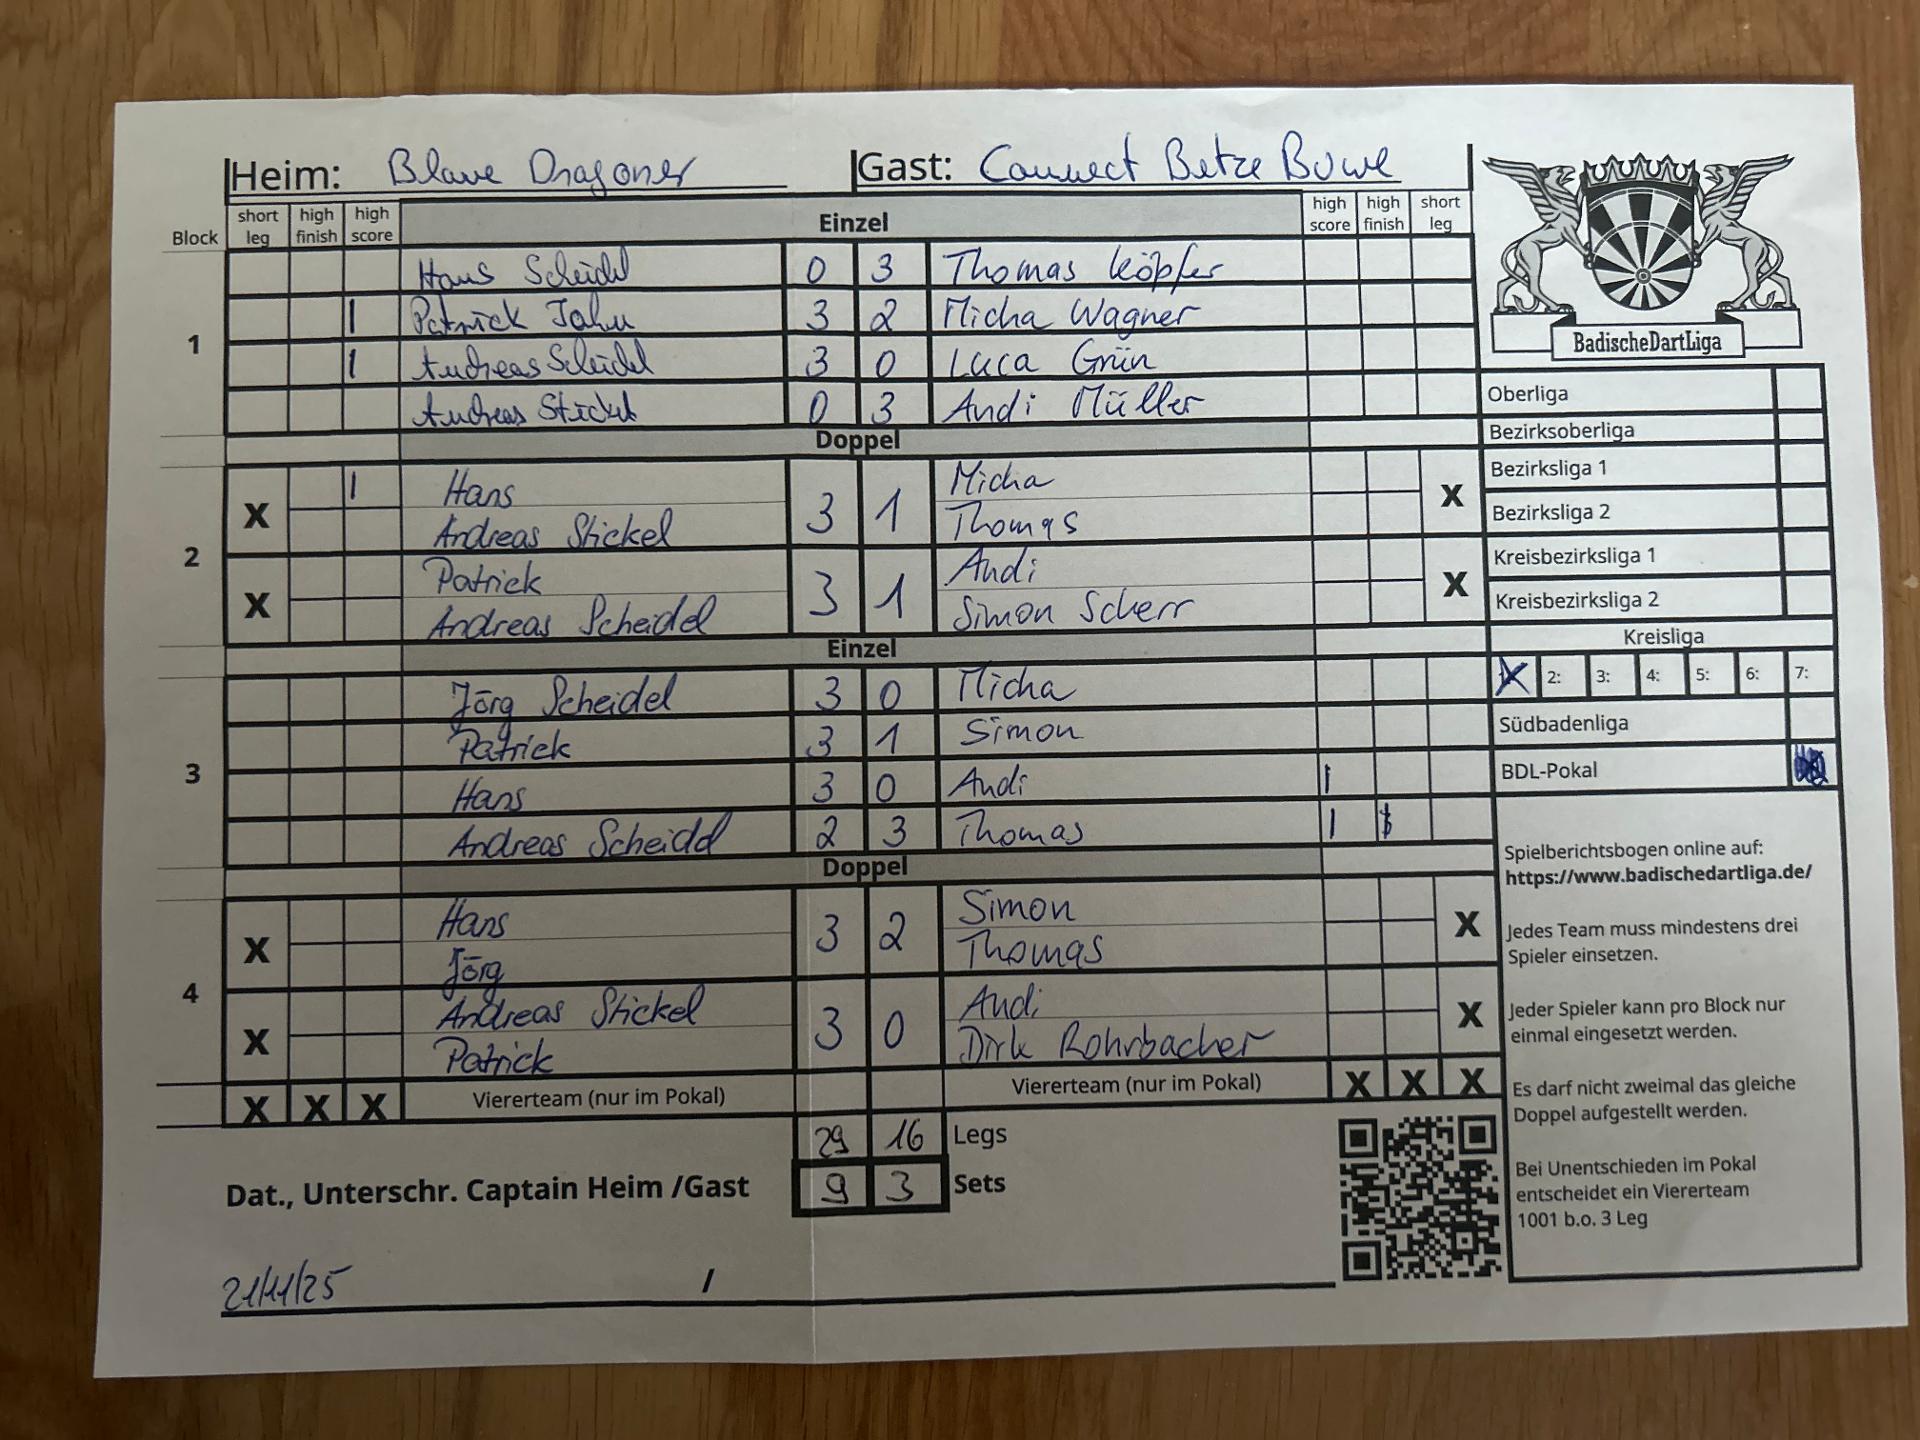 Heim: Blaue Dragoner Gast: Connect Betze Buwe
Block short leg high finish high score Einzel high score high finish short leg
1
Hans Scheidel 0 3 Thomas Köpfer
| Patrick Jahn 3 2 Micha Wagner
| Andreas Scheidel 3 0 Luca Grün
Andreas Stickel 0 3 Andi Müller
Doppel
2
X | Hans 3 1 Micha X
Andreas Stickel Thomas
X Patrick 3 1 Andi X
Andreas Scheidel Simon Scherr
Einzel
3
Jörg Scheidel 3 0 Micha
Patrick 3 1 Simon
Hans 3 0 Andi |
Andreas Scheidel 2 3 Thomas |
Doppel
4
X Hans 3 2 Simon X
Jörg Thomas
X Andreas Stickel 3 0 Andi X
Patrick Dirk Rohrbacher
X X X Viererteam (nur im Pokal) Viererteam (nur im Pokal) X X X
29 16 Legs
Dat., Unterschr. Captain Heim /Gast 9 3 Sets
21/11/25 /
BadischeDartLiga
Oberliga
Bezirksoberliga
Bezirksliga 1
Bezirksliga 2
Kreisbezirksliga 1
Kreisbezirksliga 2
Kreisliga
X 2: 3: 4: 5: 6: 7:
Südbadenliga
BDL-Pokal
Spielberichtsbogen online auf:
https://www.badischedartliga.de/
Jedes Team muss mindestens drei
Spieler einsetzen.
Jeder Spieler kann pro Block nur
einmal eingesetzt werden.
Es darf nicht zweimal das gleiche
Doppel aufgestellt werden.
Bei Unentschieden im Pokal
entscheidet ein Viererteam
1001 b.o. 3 Leg